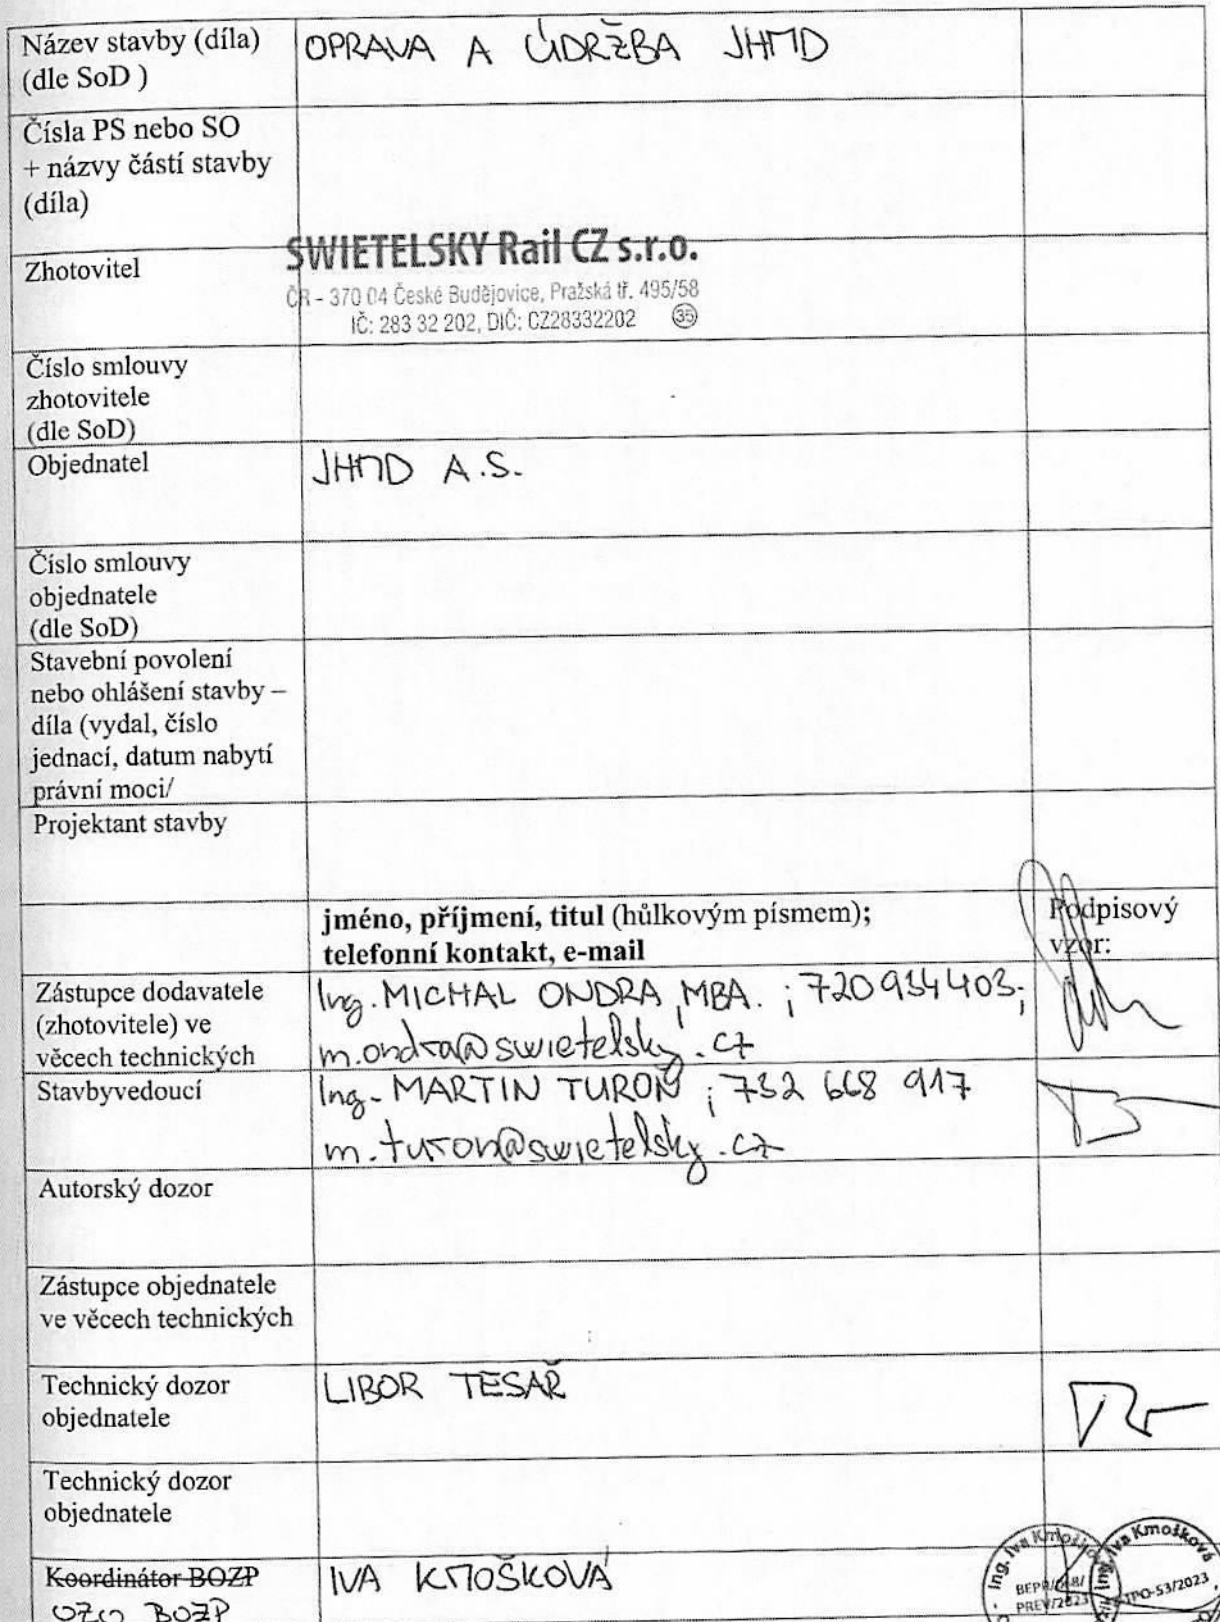 Název stavby (díla)
(dle SoD )
OPRAVA A ÚDRŽBA JHMD
Čísla PS nebo SO
+ názvy částí stavby
(díla)
Zhotovitel
SWIETELSKY Rail CZ s.r.o.
ČR - 370 04 České Budějovice, Pražská tř. 495/58
IČ: 283 32 202, DIČ: CZ28332202 35
Číslo smlouvy
zhotovitele
(dle SoD)
Objednatel
JHMD A.S.
Číslo smlouvy
objednatele
(dle SoD)
Stavební povolení
nebo ohlášení stavby –
díla (vydal, číslo
jednací, datum nabytí
právní moci/
Projektant stavby
jméno, příjmení, titul (hůlkovým písmem);
telefonní kontakt, e-mail
Podpisový
vzor:
Zástupce dodavatele
(zhotovitele) ve
věcech technických
Ing. MICHAL ONDRA, MBA. ; 720934403;
m.ondra@swietelsky.cz
Stavbyvedoucí
Ing. MARTIN TUROŇ ; 732 668 917
m.turon@swietelsky.cz
Autorský dozor
Zástupce objednatele
ve věcech technických
Technický dozor
objednatele
LIBOR TESAŘ
Technický dozor
objednatele
Koordinátor BOZP
OZO BOZP
IVA KMOŠKOVÁ
Ing. Iva Kmošková
PREV/2023
Ing. Iva Kmošková
TPO-53/2023